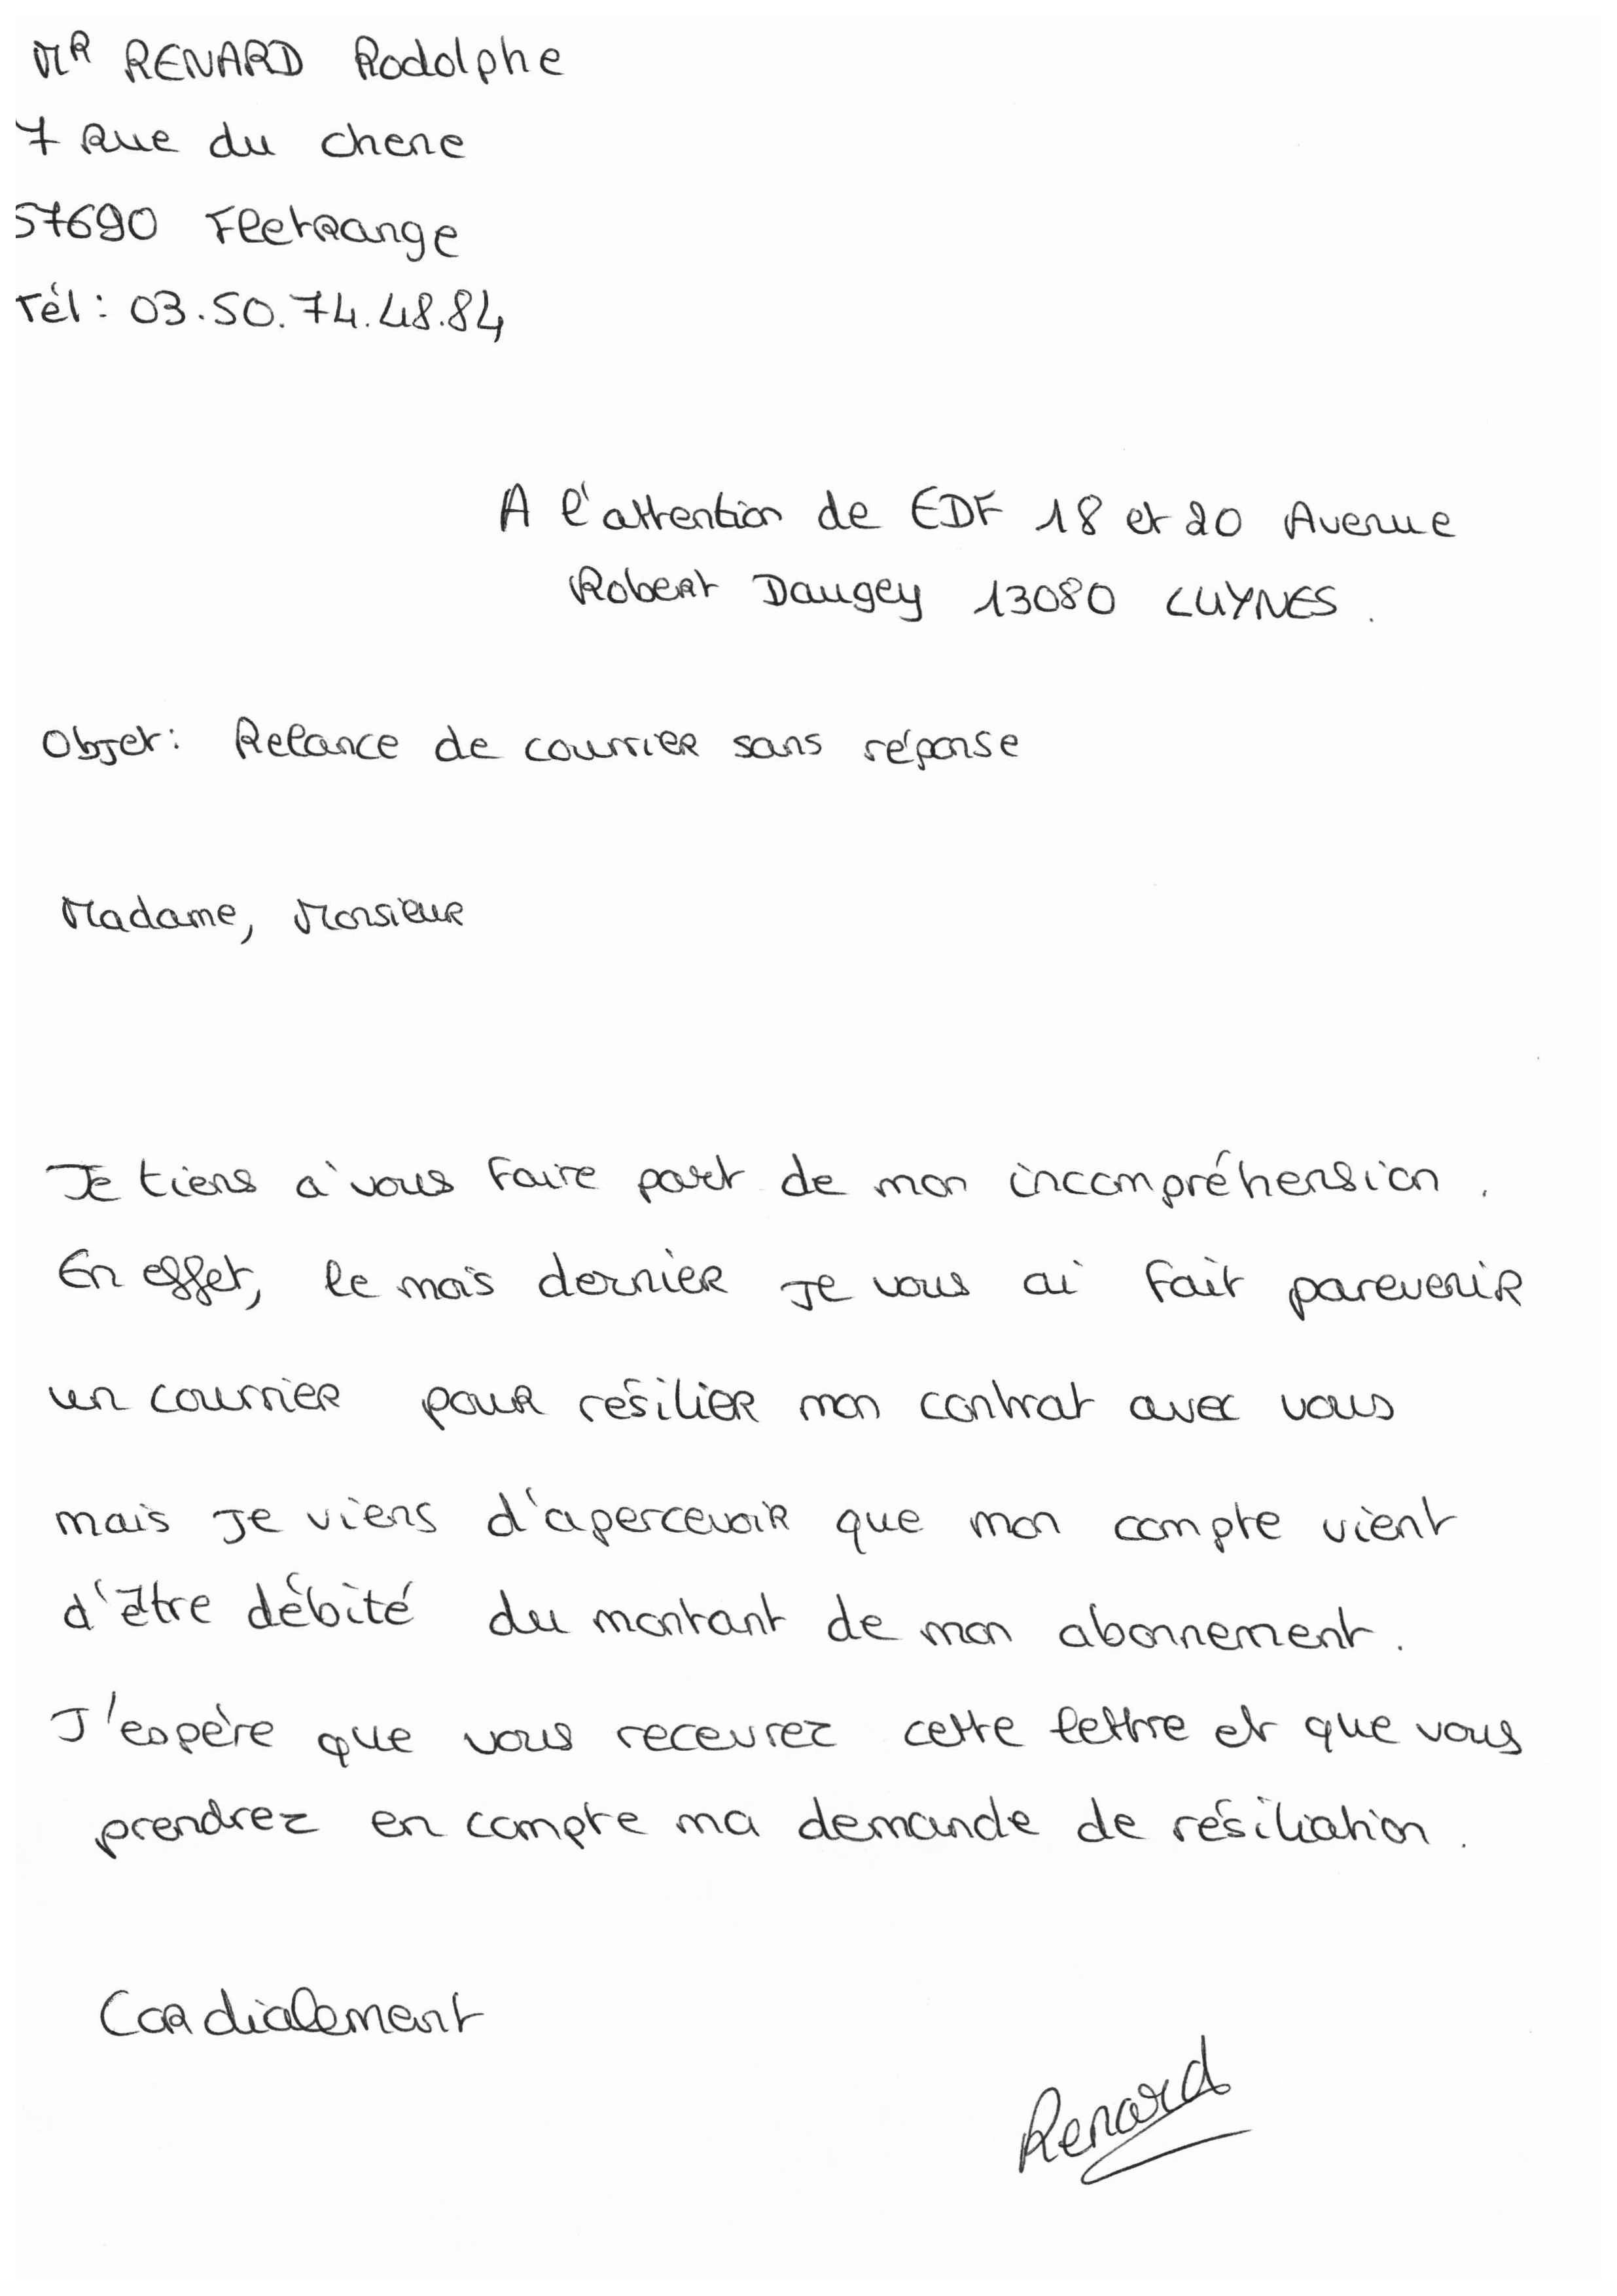 MR RENARD Rodolphe
7 Rue du chene
57690 Fletrange
Tél : 03.50.74.48.84
A l'attention de EDF 18 et 20 Avenue
Robert Daugey 13080 LUYNES.
Objet : Relance de courrier sans réponse
Madame, Monsieur
Je tiens à vous faire part de mon incompréhension.
En effet, le mois dernier je vous ai fait parevenir
un courrier pour résilier mon contrat avec vous
mais je viens d'apercevoir que mon compte vient
d'être débité du montant de mon abonnement.
J'espère que vous recevrez cette lettre et que vous
prendrez en compte ma demande de résiliation.
Cordialement
Renard